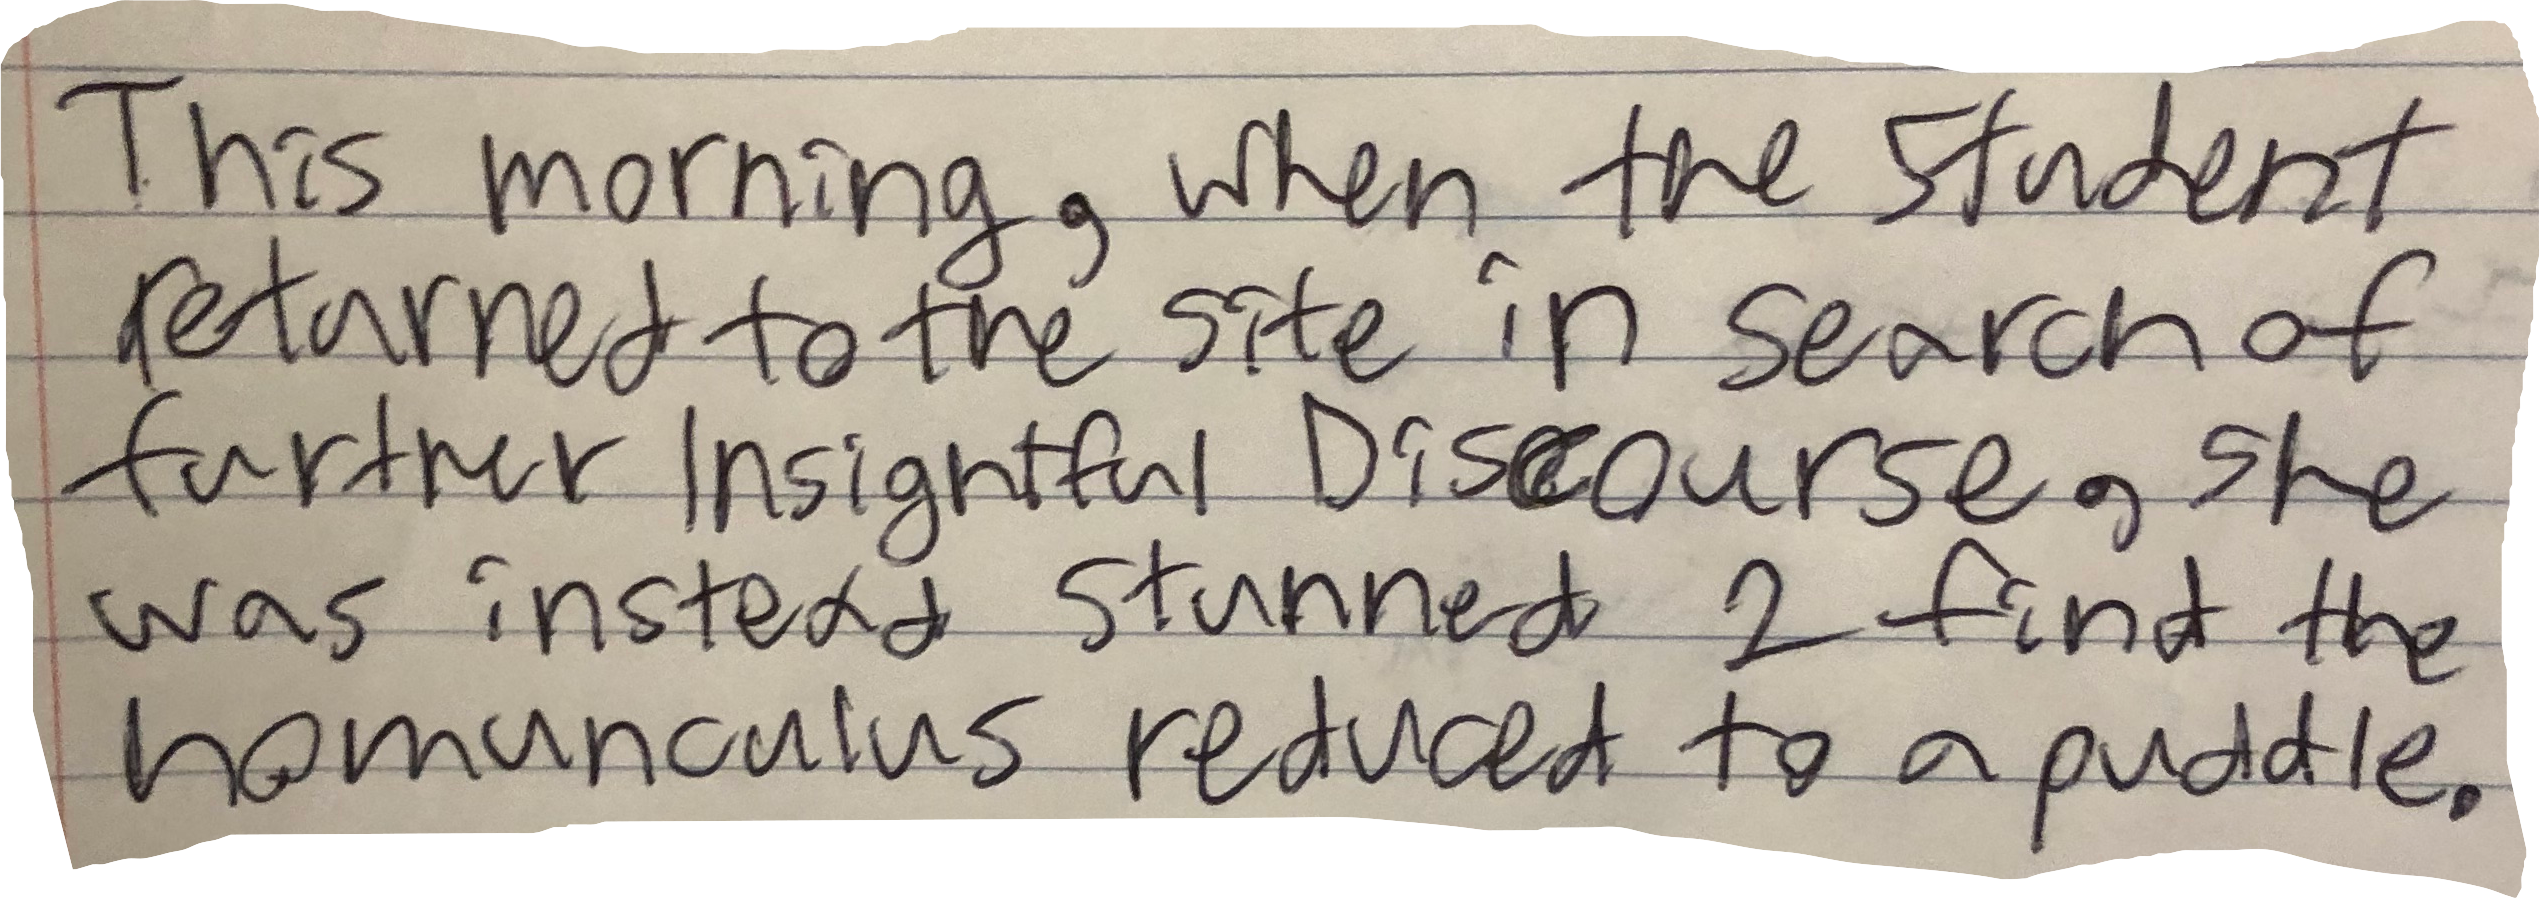 This morning, when the student
returned to the site in search of
further Insightful Discourse, she
was instead stunned 2 find the
homunculus reduced to a puddle.